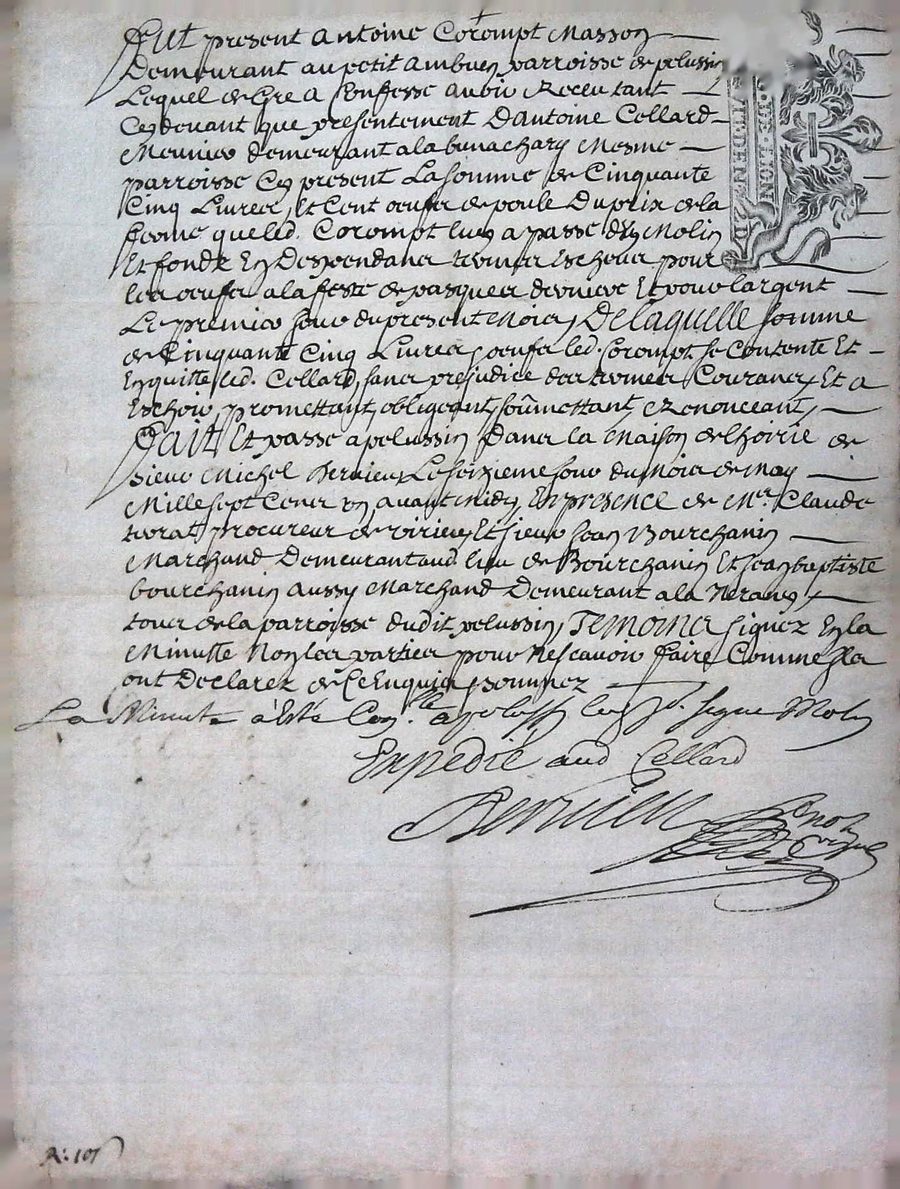 Fut present Antoine Corompt Masson
Demeurant au petit ambuen parroisse de pelussin
Lequel de Gre a Confesse avoir Receu tant
Cy devant que presentement D'antoine Cellard
Meunier demeurant a la bonacharj Mesme
parroisse Cy present La somme de Cinquante
Cinq Livres, Et Cent oeufs de poule Du prix de la
ferme que led. Corompt luy a passe dun Molin
Et fondz En Despendans termes Escheus pour
les oeufs a la feste de pasques derniere Et pour l'argent
Le premier Jour du present Mois, De laquelle somme
de Cinquante Cinq Livres, oeufs led. Corompt se Contente Et
En quitte led. Cellard, sans prejudice des termes Courans, Et a
Eschoir, promettant, obligeant, soumettant, Renonceant,
Fait Et passe a pelussin Dans la Maison de lhoirie de
sieur Michel Dervieu, Le seizieme Jour du Mois de May
Mille sept Cens un avant Midy, En presence de Mr. Claude
procureur de virieu, Et sieur Jean Bourchanin
Marchand Demeurant aud. lieu de Bourchanin Et Jean baptiste
bourchanin aussy Marchand Demeurant a la
tour de la parroisse dudit pelussin, Temoins signez En la
Minutte Non les parties pour Ne scavoir faire Comme Ils
ont Declarez de Ce Enquis, Sommez
La Minute a Esté Con.lle a peluss. signe
Expedié aud Cellard
Dervieu
DE LION
R: 107